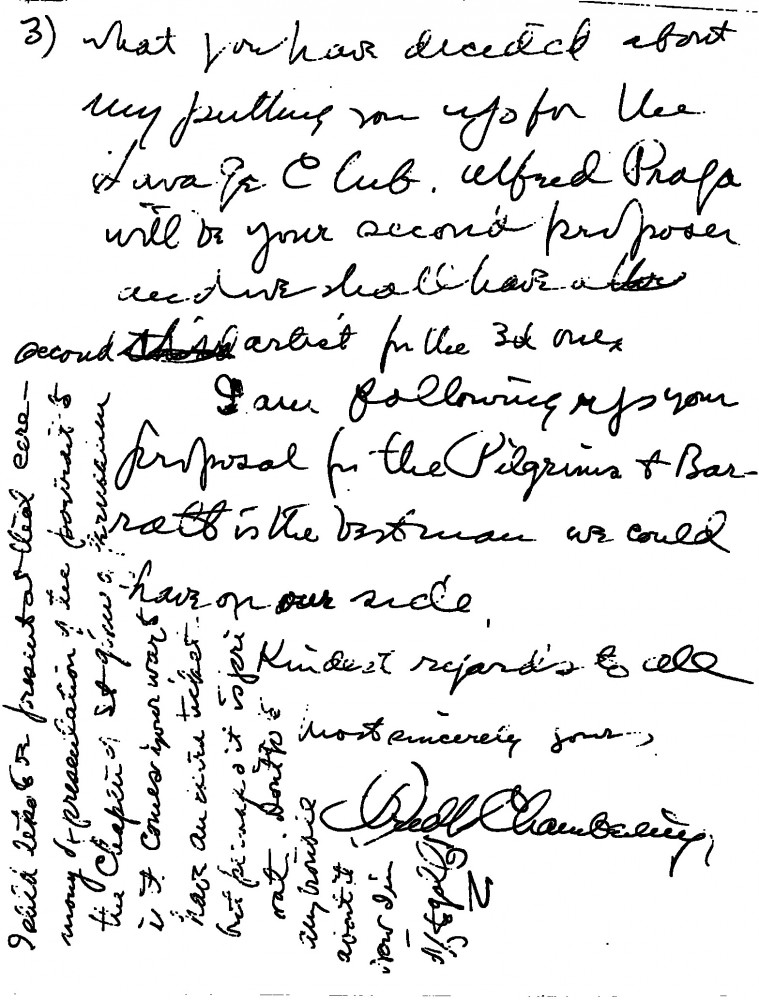 3) what you have decided about
my putting you up for the
Savage Club. Alfred Praga
will be your second proposer
and we shall have a
second artist for the 3d one.
I am following up your
proposal for the Pilgrims & Bar-
ratt is the best man we could
have on our side.
Kindest regards to all
most sincerely yours,
Chamberlin
I should like to be present at the cere-
mony of presentation of the portrait to
the Chapter of St
if it comes your way to
have an extra ticket.
but perhaps it is pri
vate. Don't be
any trouble
about it